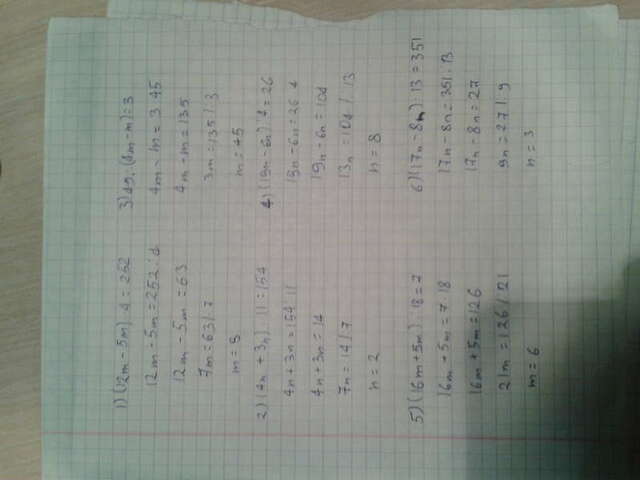 1) (12m - 5m) · 4 = 252
12m - 5m = 252 : 4
12m - 5m = 63
7m = 63 / 7
m = 9
2) (4n + 3n) · 11 = 154
4n + 3n = 154 : 11
4n + 3n = 14
7n = 14 / 7
n = 2
3) 45 : (4m - m) = 3
4m - m = 3 · 45
4m - m = 135
3m = 135 / 3
m = 45
4) (19n - 6n) : 4 = 26
19n - 6n = 26 · 4
19n - 6n = 104
13n = 104 / 13
n = 8
5) (16m + 5m) : 18 = 7
16m + 5m = 7 · 18
16m + 5m = 126
21m = 126 / 21
m = 6
6) (17n - 8n) · 13 = 351
17n - 8n = 351 : 13
17n - 8n = 27
9n = 27 / 9
n = 3